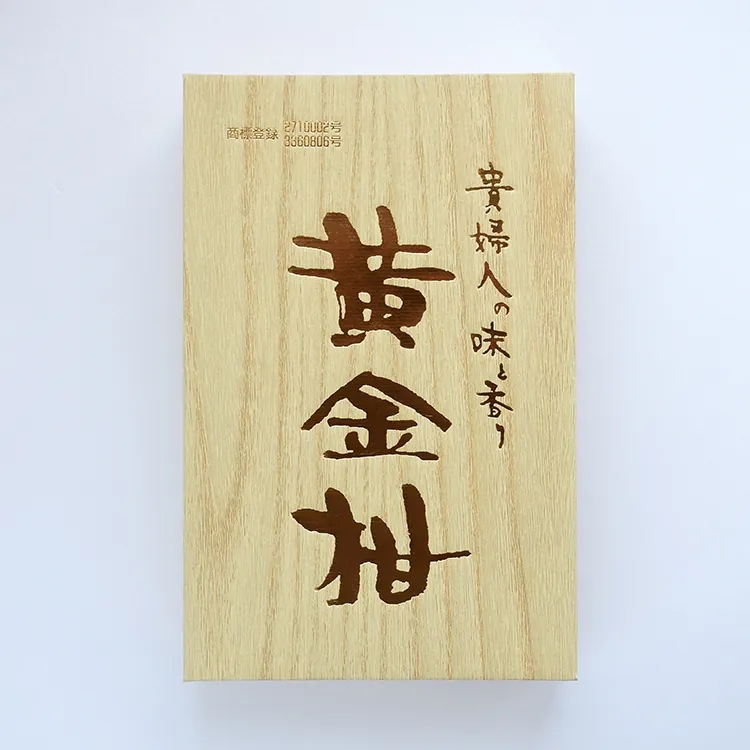 商標登録 2710002号
3360806号
貴婦人の味と香り
黄金柑